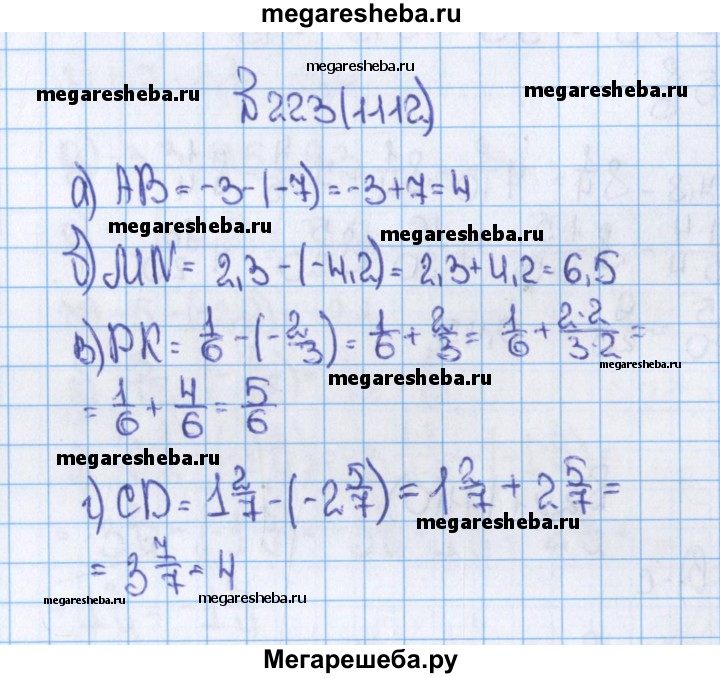 megaresheba.ru
megaresheba.ru
megaresheba.ru
megaresheba.ru
№ 223 (1112)
а) AB = -3 - (-7) = -3 + 7 = 4
megaresheba.ru
megaresheba.ru
б) MN = 2,3 - (-4,2) = 2,3 + 4,2 = 6,5
в) PK = 1/6 - (-2/3) = 1/6 + 2/3 = 1/6 + 2·2/3·2 =
megaresheba.ru
megaresheba.ru
= 1/6 + 4/6 = 5/6
megaresheba.ru
г) CD = 1 2/7 - (-2 5/7) = 1 2/7 + 2 5/7 =
megaresheba.ru
= 3 7/7 = 4
megaresheba.ru
megaresheba.ru
Мегарешеба.ру